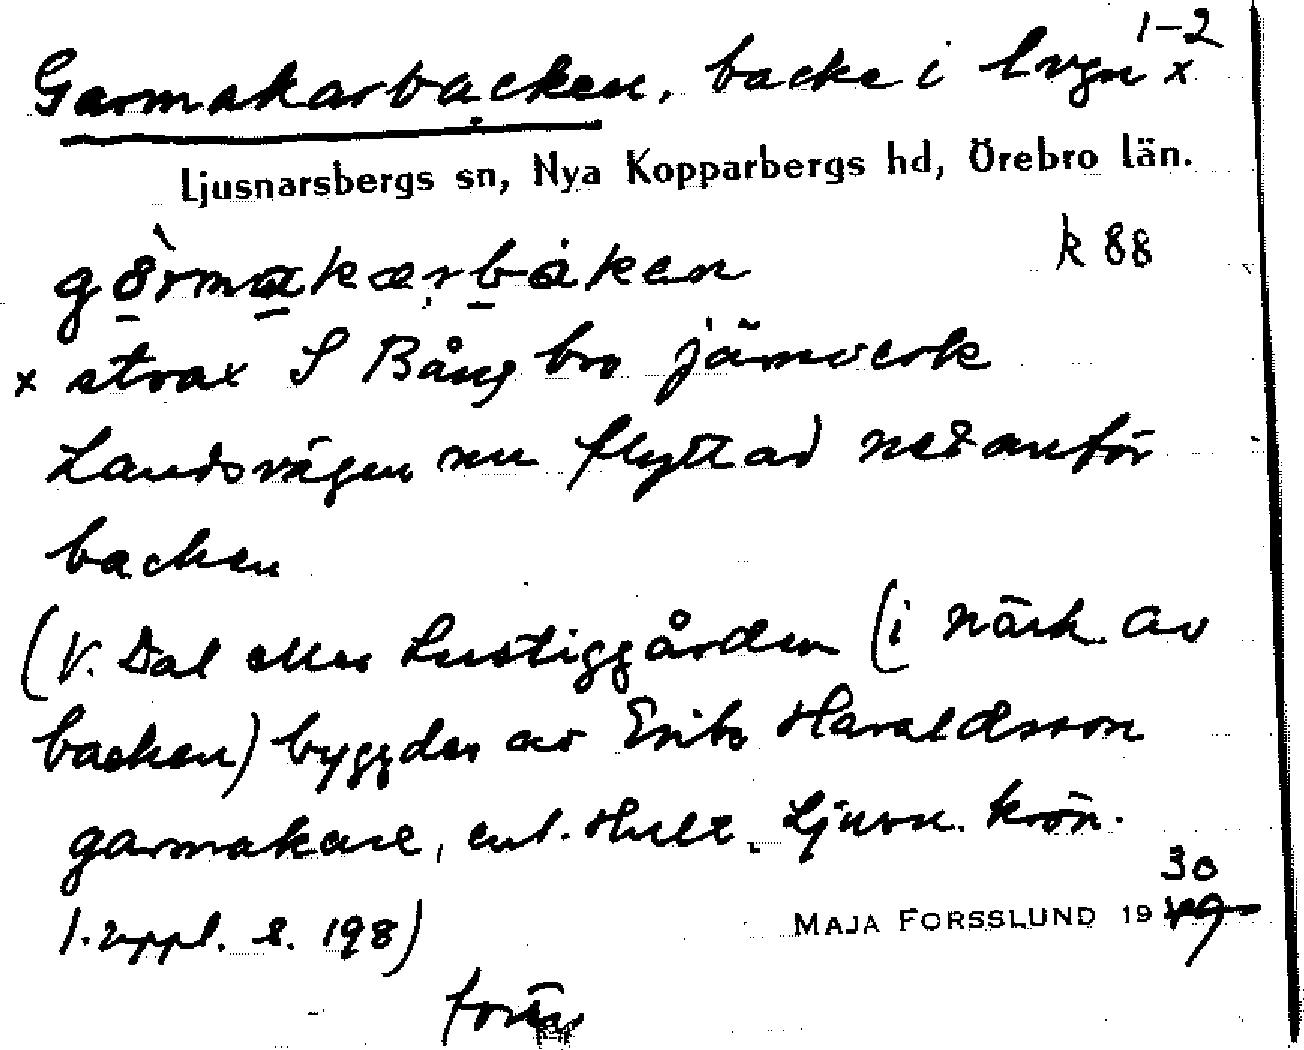 1-2
Garmakarbacken, backe i lvgn x
Ljusnarsbergs sn, Nya Kopparbergs hd, Örebro län.
k 88
x strax S Bångbro järnverk
Landsvägen nu flyttad nedanför
backen
(V. Dal eller Lustiggården (i närh. av
backen) byggdes av Eriks Haraldsson
garmakare, enl. Hult. Ljusn. krön.
1. uppl. s. 198)
MAJA FORSSLUND 19 30